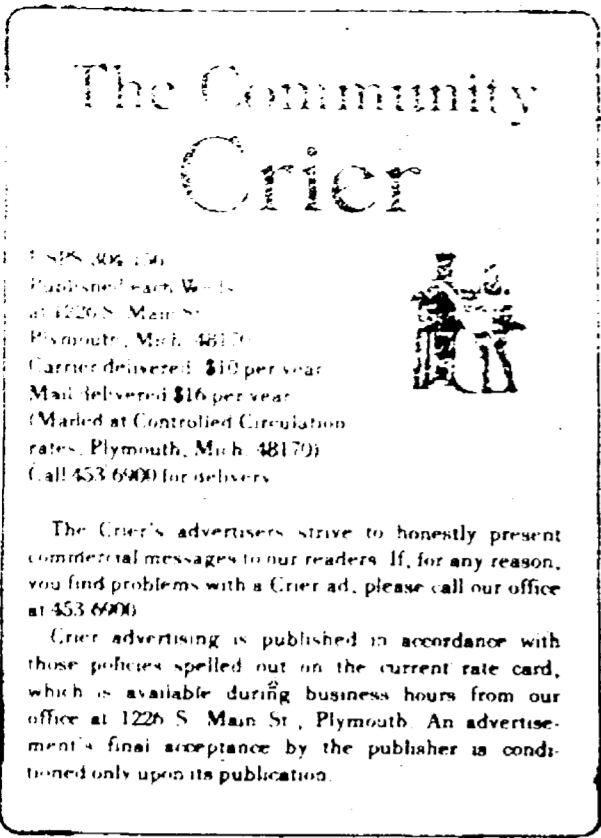 The Community
Crier
USPS 304-150
Published each Weds.
at 1226 S. Main St.
Plymouth, Mich. 48170
Carrier delivered: $10 per year
Mail delivered $16 per year
(Mailed at Controlled Circulation
rates, Plymouth, Mich. 48170)
Call 453-6900 for delivery
The Crier's advertisers strive to honestly present
commercial messages to our readers. If, for any reason,
you find problems with a Crier ad, please call our office
at 453-6900.
Crier advertising is published in accordance with
those policies spelled out on the current rate card,
which is available during business hours from our
office at 1226 S. Main St., Plymouth. An advertise-
ment's final acceptance by the publisher is condi-
tioned only upon its publication.